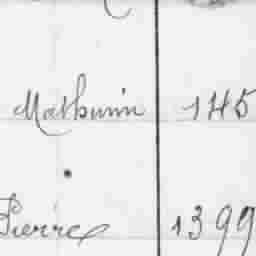 Mathurin 145
Pierre 1399